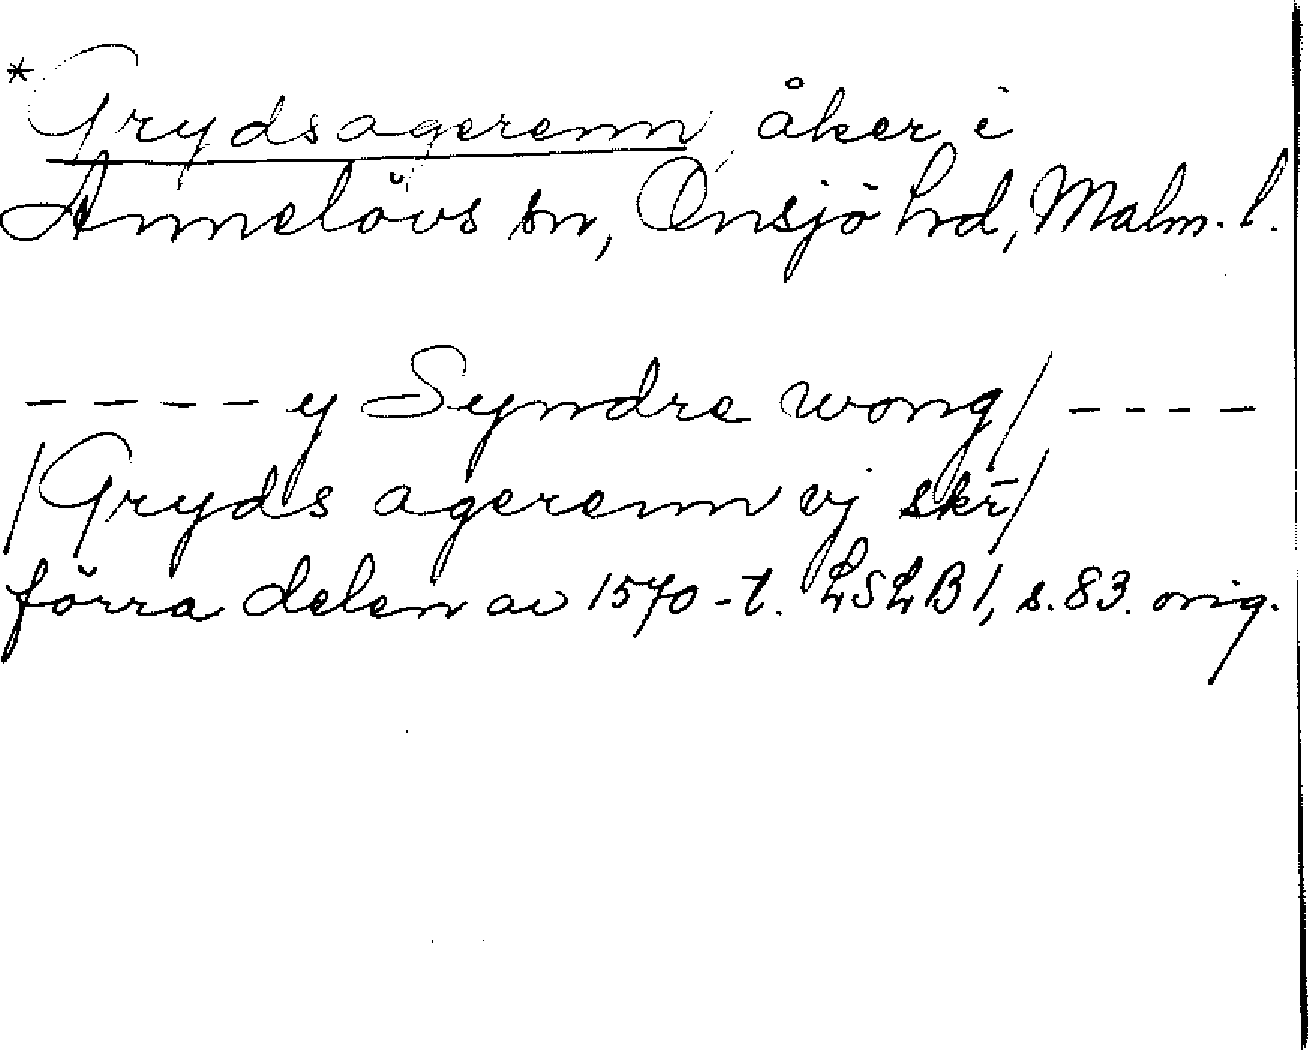 *Grydsagerenn, åker i
Annelövs sn, Onsjö hd, Malm. l.
---- y Syndre wong/ ----
/Gryds agerenn vj skr̄/
förra delen av 1570-t. LSLB1, s. 83. orig.